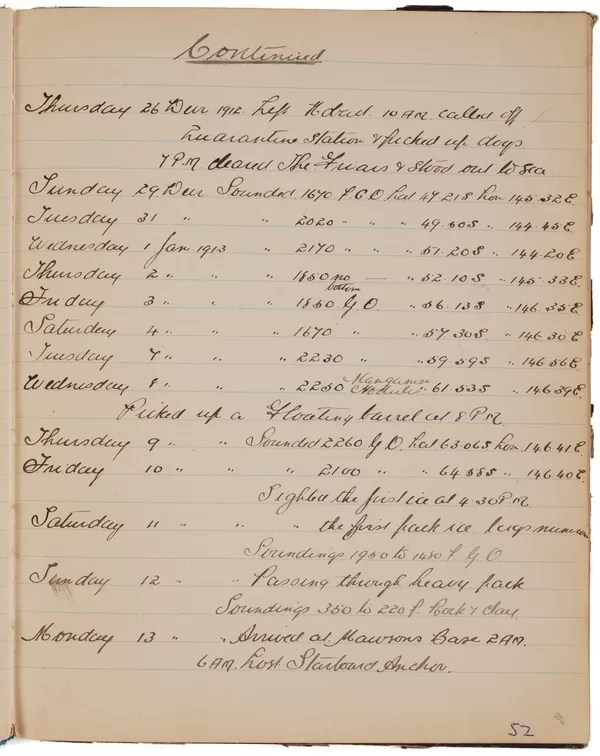 Continued
Thursday 26 Decr 1912 Left Hobart 10 AM. called off
Quarantine Station & picked up dogs.
7 P.M cleared The Friars & Stood out to Sea
Sunday 29 Decr Sounded 1670 f. G O lat 47.21S lon 145.32E
Tuesday 31 " " 2020 " " " 49.50S " 144.45E
Wednesday 1 Jan 1913 " 2170 " " " 51.20S " 144.20E
Thursday 2 " " " 1850 no bottom — " 52.10S " 145.33E
Friday 3 " " " 1850 G.O. " 56.13S " 146.35E
Saturday 4 " " " 1670 " " 57.30S " 146.30E
Tuesday 7 " " " 2230 " " 59.59S " 146.56E
Wednesday 8 " " " 2250 Manganese Nodules " 61.53S " 146.39E
Picked up a Floating barrel at 8 P.M.
Thursday 9 " " Sounded 2260 G.O. lat 63.06S lon 146.41E
Friday 10 " " " 2100 " " 64.58S " 146.40E
Sighted the first ice at 4.30 P.M.
Saturday 11 " " " the first pack ice
Soundings 1950 to 1450 f G O
Sunday 12 " " Passing through heavy pack
Soundings 350 to 220 f. Rock & clay
Monday 13 " " Arrived at Mawsons Base 2 AM.
6 AM. Lost Starboard Anchor.
52